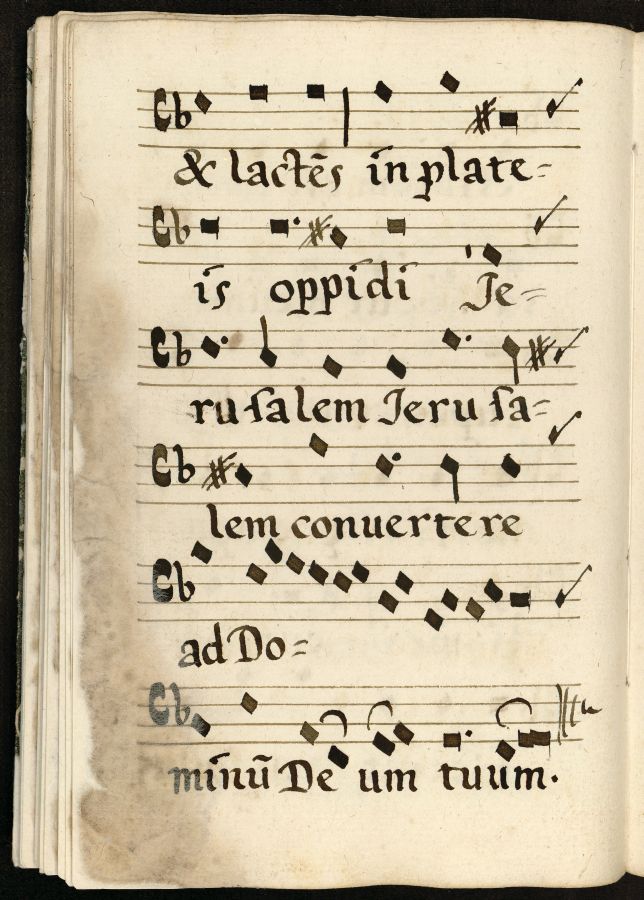 & lactẽs in plate=
is oppidi Je=
rusalem Jerusa=
lem conuertere
ad Do=
minũ De um tuum.